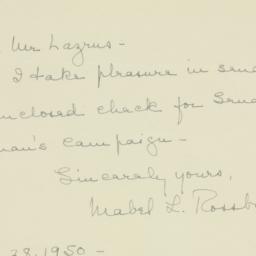 Mr Lazrus -
I take pleasure in
enclosed check for
man's campaign -
Sincerely yours,
Mabel L. Rossb
28. 1950 -